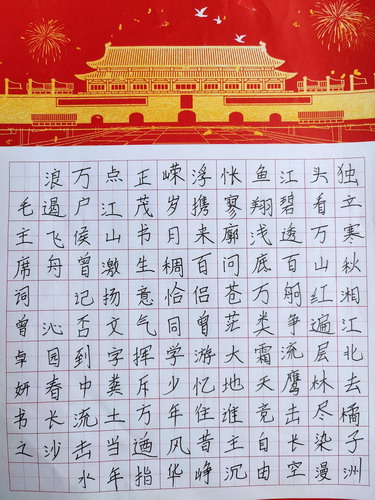 独立寒秋湘江北去橘子洲
头看万山红遍层林尽染漫
江碧透百舸争流鹰击长空
鱼翔浅底万类霜天竞自由
怅寥廓问苍茫大地谁主沉
浮携来百侣曾游忆往昔峥
嵘岁月稠恰同学少年风华
正茂书生意气挥斥方遒指
点江山激扬文字粪土当年
万户侯曾记否到中流击水
浪遏飞舟 沁园春长沙
毛主席词曾卓妍书之